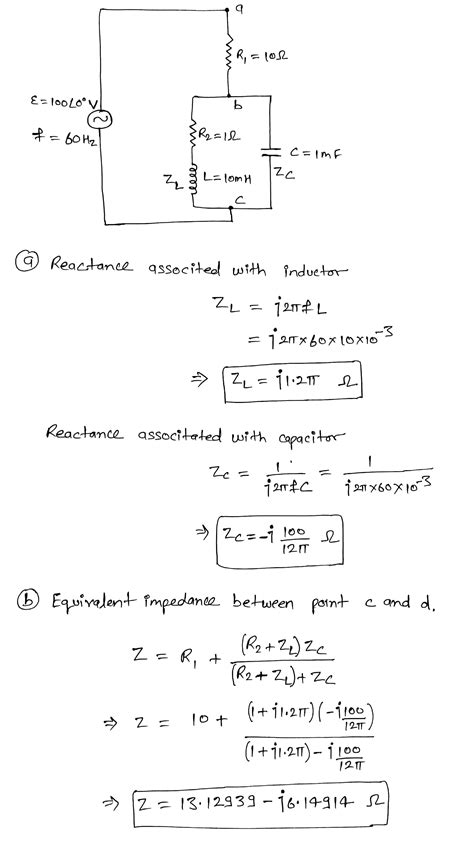 a
R₁ = 10Ω
ε = 100∠0° V
f = 60Hz
b
R₂ = 1Ω
C = 1mF
Z_L
L = 10mH
Z_C
C
(a) Reactance associted with inductor
Z_L = j2πfL
= j2π×60×10×10⁻³
⇒ Z_L = j1.2π Ω
Reactance associtated with capacitor
Z_C = 1/(j2πfC) = 1/(j2π×60×10⁻³)
⇒ Z_C = -j 100/(12π) Ω
(b) Equivalent impedance between point c and d.
Z = R₁ + ((R₂+Z_L)Z_C)/((R₂+Z_L)+Z_C)
⇒ Z = 10 + ((1+j1.2π)(-j100/(12π)))/((1+j1.2π)-j100/(12π))
⇒ Z = 13.12939 - j6.14914 Ω